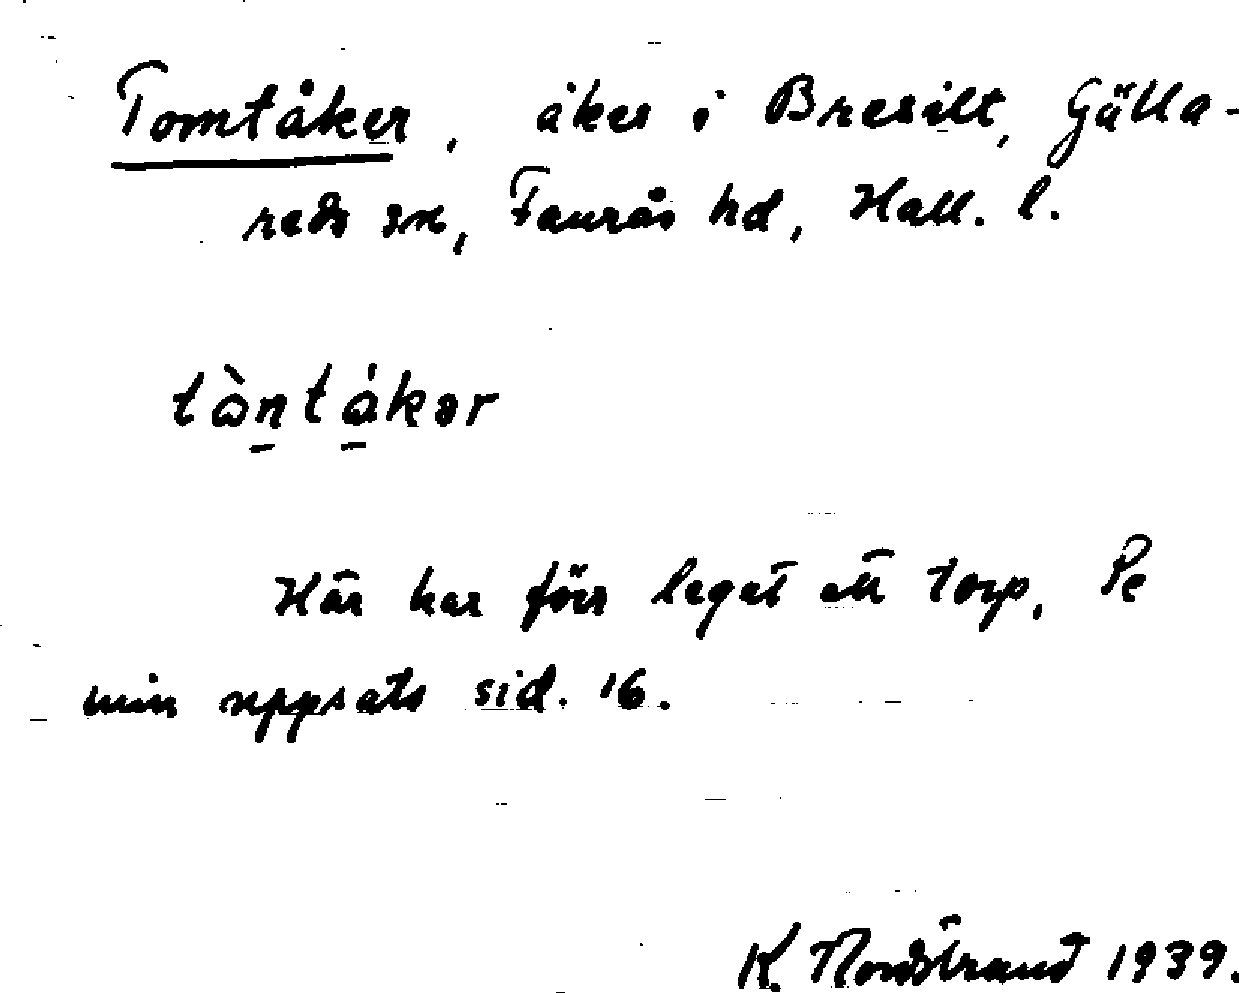 Tomtåker, åker i Bresilt, Gälla-
reds sn, Faurås hd, Hall. l.
tòntåkər
Här har förr legat ett torp, Se
min uppsats sid. 16.
K. Nordstrand 1939.